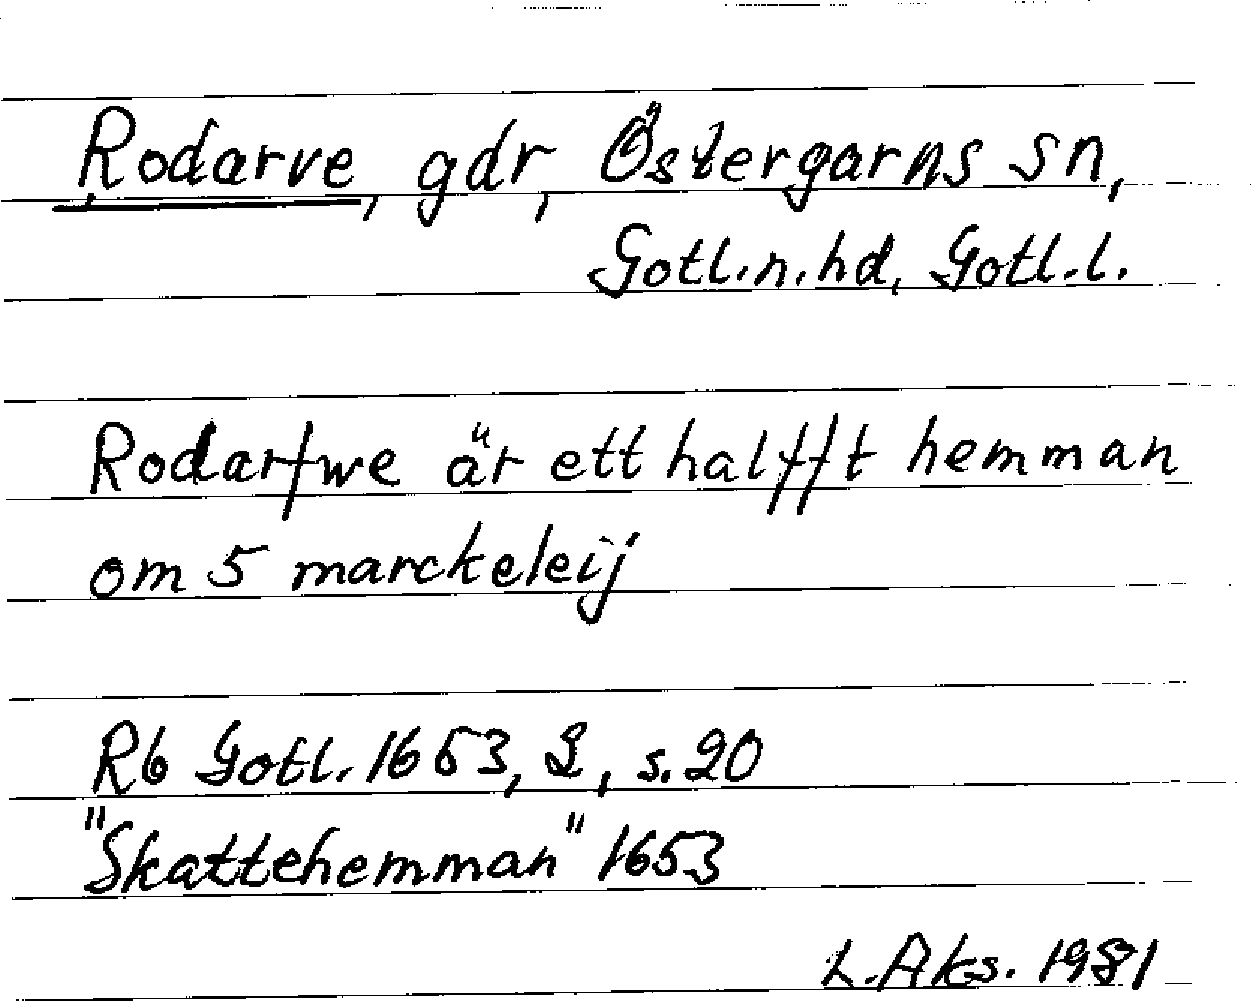 Rodarve, gdr, Östergarns sn,
Gotl.n.hd, Gotl.l.
Rodarfwe är ett halfft hemman
om 5 marckeleij
Rb Gotl. 1653, 2, s. 20
"Skattehemman" 1653
L. Aks. 1981